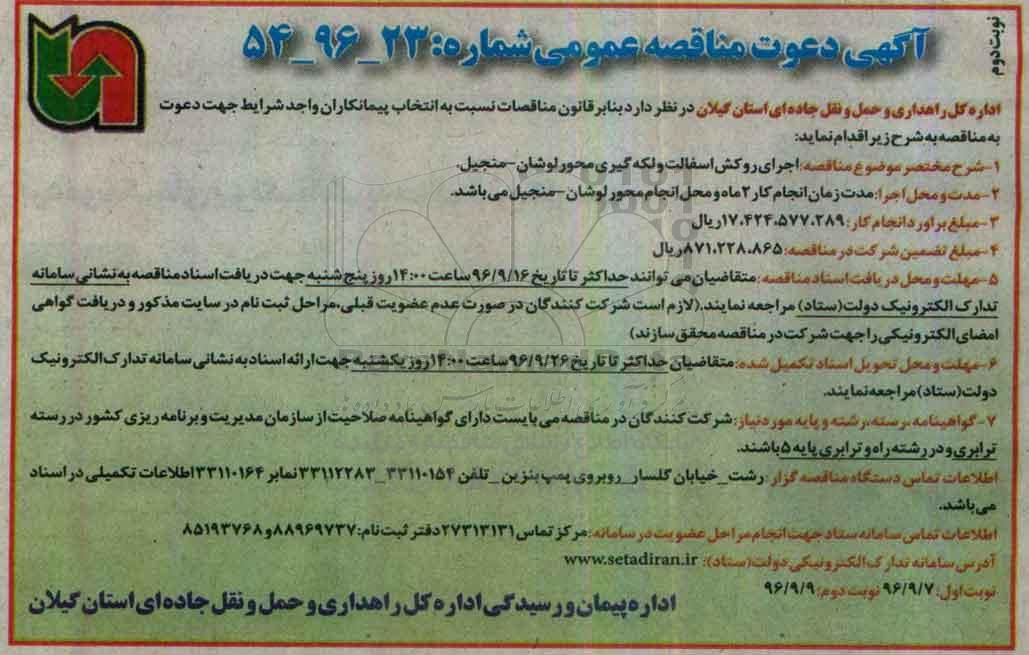 نوبت دوم
آگهی دعوت مناقصه عمومی شماره: ۲۳_۹۶_۵۴
اداره کل راهداری و حمل و نقل جاده ای استان گیلان در نظر دارد بنابر قانون مناقصات نسبت به انتخاب پیمانکاران واجد شرایط جهت دعوت
به مناقصه به شرح زیر اقدام نماید:
۱-شرح مختصر موضوع مناقصه: اجرای روکش اسفالت و لکه گیری محور لوشان-منجیل.
۲-مدت و محل اجرا: مدت زمان انجام کار ۲ ماه و محل انجام محور لوشان-منجیل می باشد.
۳-مبلغ براورد انجام کار: ۱۷،۴۲۴،۵۷۷،۲۸۹ ریال
۴-مبلغ تضمین شرکت در مناقصه: ۸۷۱،۲۲۸،۸۶۵ ریال
۵-مهلت و محل دریافت اسناد مناقصه: متقاضیان می توانند حداکثر تا تاریخ ۹۶/۹/۱۶ ساعت ۱۴:۰۰ روز پنج شنبه جهت دریافت اسناد مناقصه به نشانی سامانه
تدارک الکترونیک دولت (ستاد) مراجعه نمایند.(لازم است شرکت کنندگان در صورت عدم عضویت قبلی،مراحل ثبت نام در سایت مذکور و دریافت گواهی
امضای الکترونیکی را جهت شرکت در مناقصه محقق سازند)
۶-مهلت و محل تحویل اسناد تکمیل شده: متقاضیان حداکثر تا تاریخ ۹۶/۹/۲۶ ساعت ۱۴:۰۰ روز یکشنبه جهت ارائه اسناد به نشانی سامانه تدارک الکترونیک
دولت (ستاد) مراجعه نمایند.
۷-گواهینامه،رسته،رشته و پایه مورد نیاز: شرکت کنندگان در مناقصه می بایست دارای گواهینامه صلاحیت از سازمان مدیریت و برنامه ریزی کشور در رسته
ترابری و در رشته راه و ترابری پایه ۵ باشند.
اطلاعات تماس دستگاه مناقصه گزار: رشت_خیابان گلسار_روبروی پمپ بنزین_تلفن ۳۳۱۱۰۱۵۴_۳۳۱۱۲۲۸۳ نمابر ۳۳۱۱۰۱۶۴ اطلاعات تکمیلی در اسناد
می باشد.
اطلاعات تماس سامانه ستاد جهت انجام مراحل عضویت در سامانه: مرکز تماس ۲۷۳۱۳۱۳۱ دفتر ثبت نام: ۸۸۹۶۹۷۳۷ و ۸۵۱۹۳۷۶۸
آدرس سامانه تدارک الکترونیکی دولت (ستاد): www.setadiran.ir
نوبت اول: ۹۶/۹/۷ نوبت دوم: ۹۶/۹/۹
اداره پیمان و رسیدگی اداره کل راهداری و حمل و نقل جاده ای استان گیلان